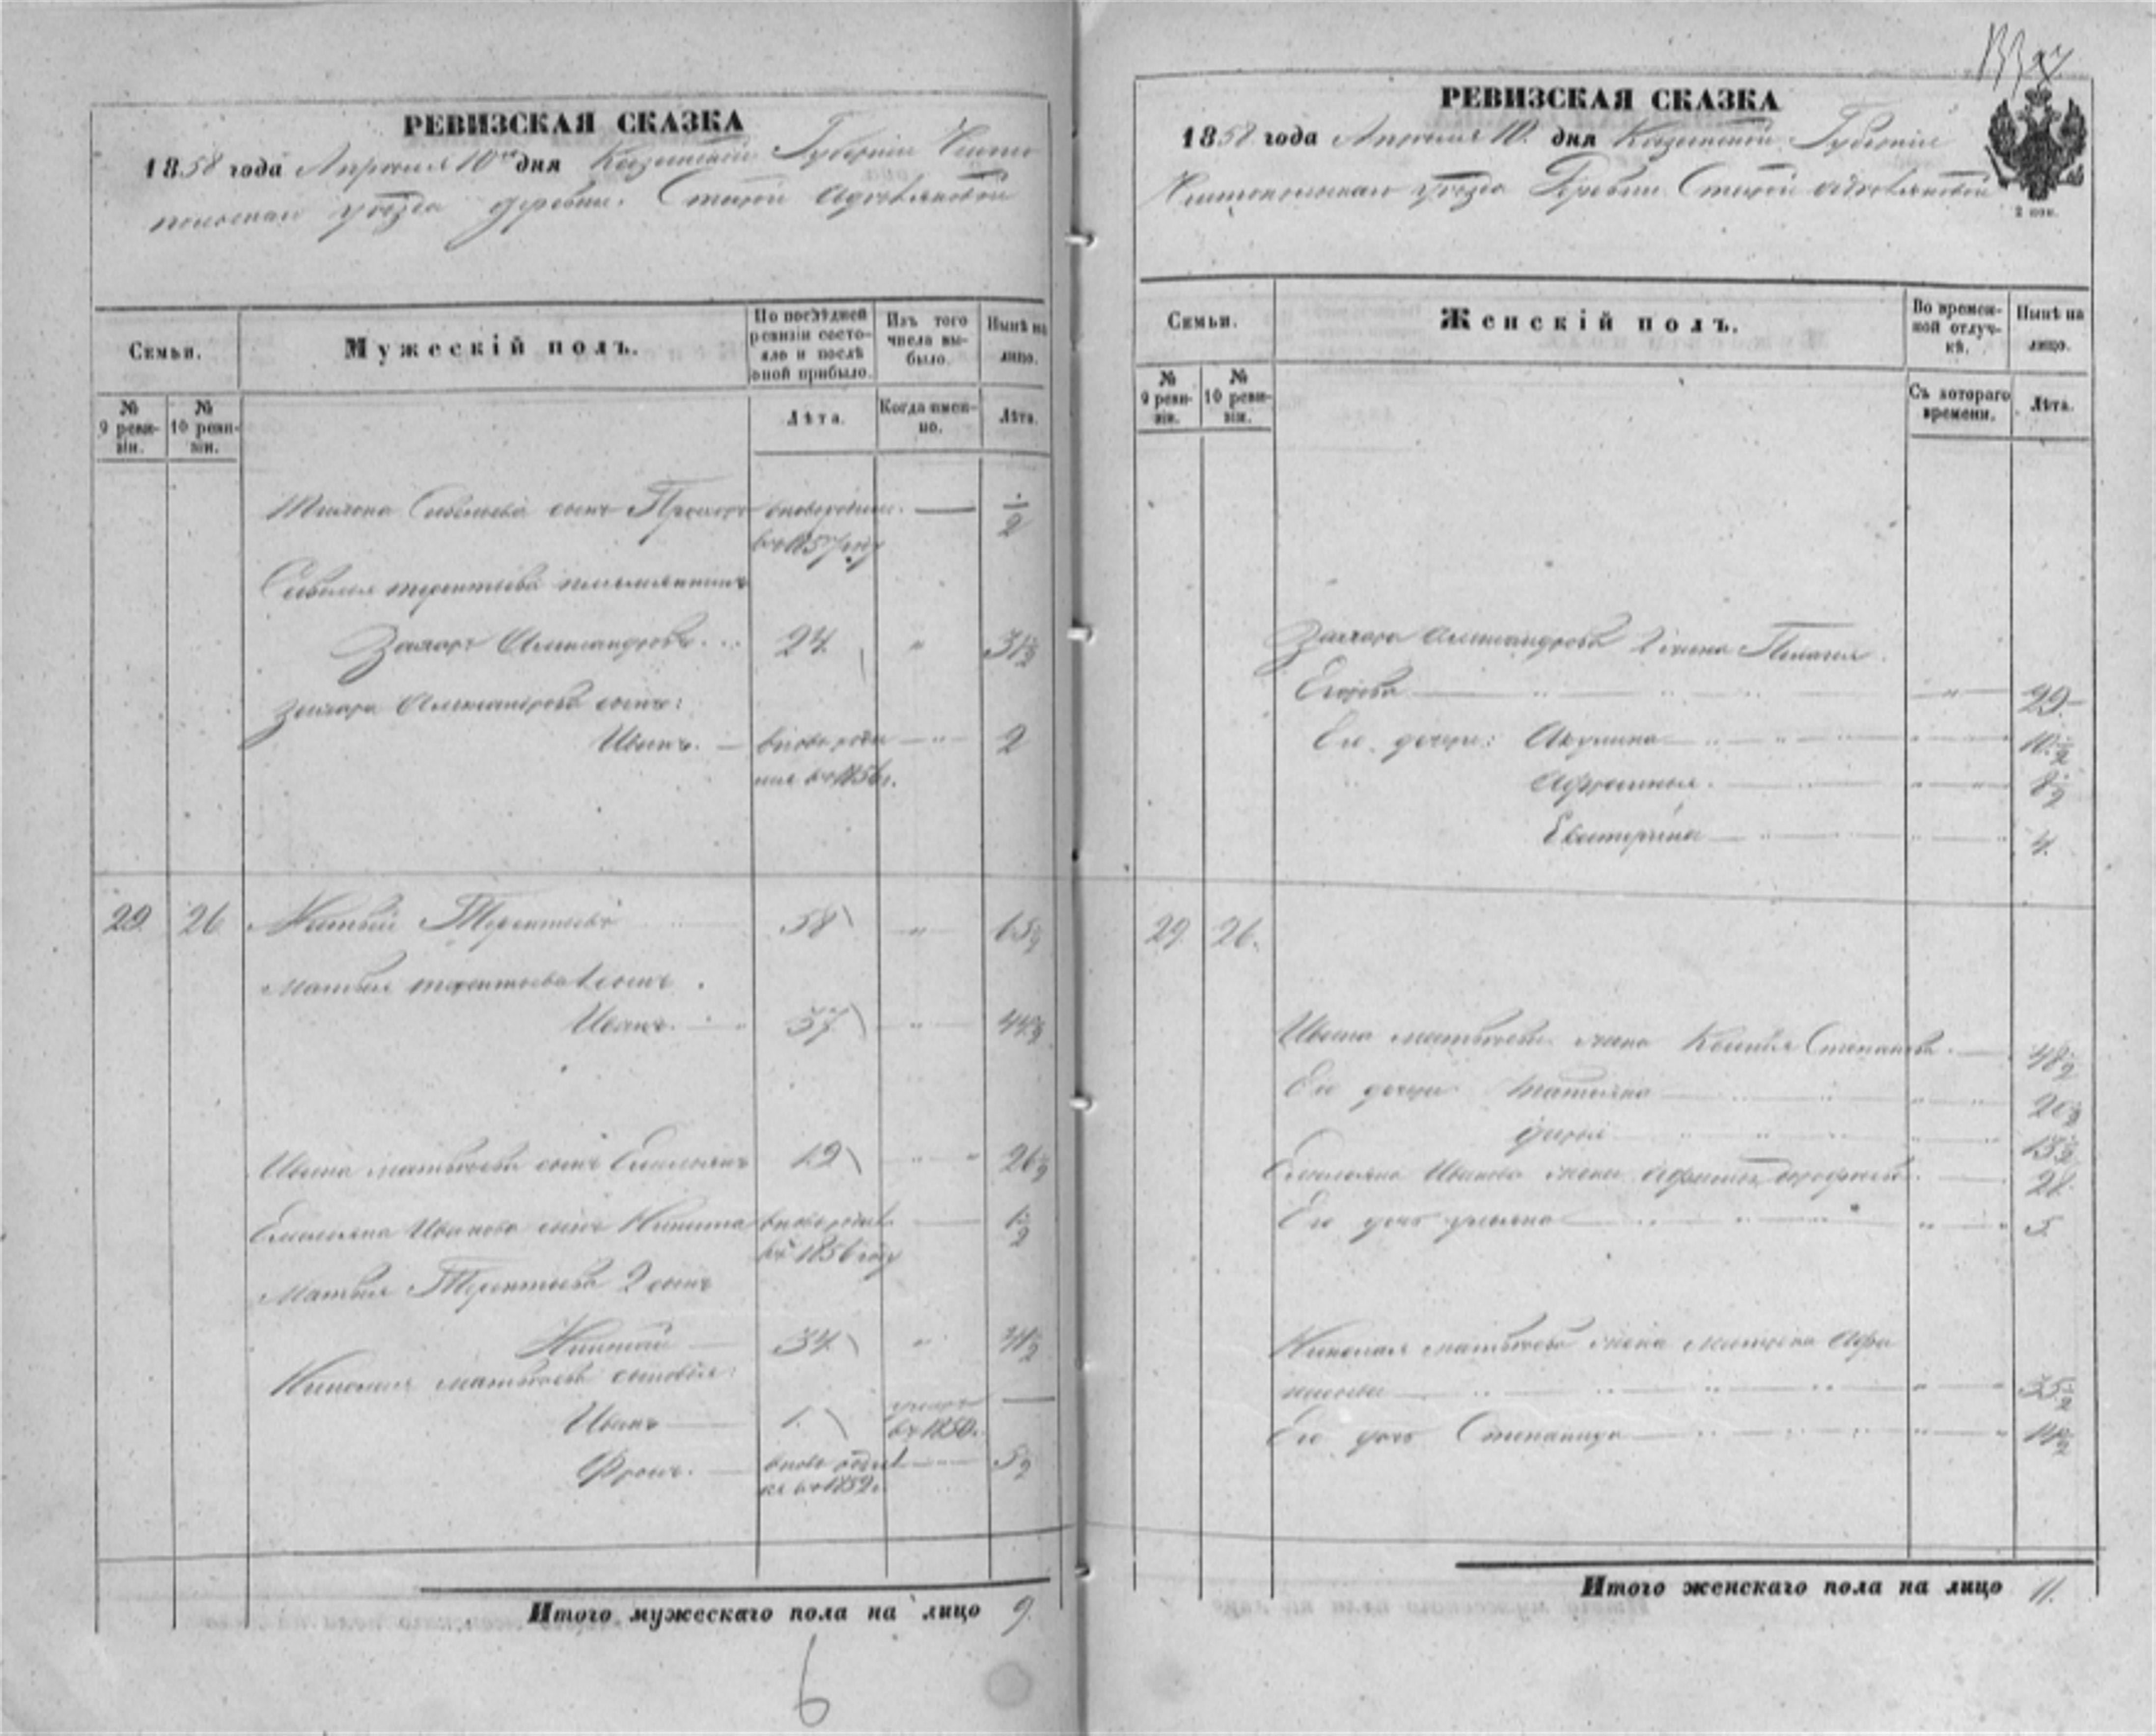 РЕВИЗСКАЯ СКАЗКА
1858 года Апреля 10го дня Казанской Губернии Чисто
польскаго уезда деревни Старой
Семьи.
Мужескій полъ.
По послѣдней ревизіи состояло и послѣ оной прибыло.
Изъ того числа выбыло.
Нынѣ на лицо.
№ 9 ревизіи.
№ 10 ревизіи.
Лѣта.
Когда именно.
Лѣта.
сынъ вновьрожден. 1/2
въ 1857 году
племянникъ
Захаръ Александровъ 24 " 31 1/2
Захара Александрова сынъ:
Иванъ. вновь роди 2
лся въ 1856 г.
29 26 Матвей Терентьевъ 58 " 65 1/2
Матвея Терентьева 1 сынъ
Иванъ. 37 " 44 1/2
Ивана Матвеева сынъ Емельянъ 19 " 26 1/2
Емельяна Иванова сынъ Никита вновь родил. 1 1/2
въ 1856 году
Матвея Терентьева 2 сынъ
34 " 41 1/2
Николая Матвеева сыновья:
Иванъ 1. умеръ
въ 1850 г.
Фролъ. вновь родил 5 1/2
ся въ 1852 г.
Итого мужескаго пола на лицо 9.
6
РЕВИЗСКАЯ СКАЗКА
1858 года Апреля 10. дня Казанской Губернии
Чистопольскаго уезда Деревни Старой
2 коп.
Семьи.
Женскій полъ.
Во временной отлучкѣ.
Нынѣ на лицо.
№ 9 ревизіи.
№ 10 ревизіи.
Съ котораго времени.
Лѣта.
Захара Александрова 2 жена Пелагея
Егорова " 29
Его дочери: Акулина 10 1/2
8 1/2
Екатерина 4.
29. 26.
Ивана Матвеева жена Степанова 48 1/2
Его дочери Татьяна 20 1/2
Дарья 13 1/2
Емельяна Иванова жена 28.
Его дочь Ульяна 5
Николая Матвеева жена Матрена Афа
насьева 35 1/2
Его дочь Степанида
Итого женскаго пола на лицо 11.